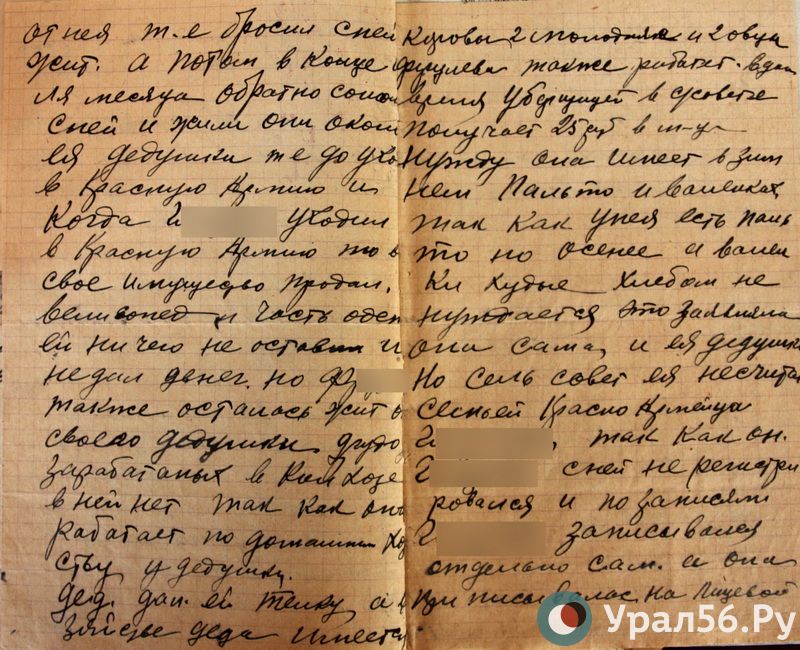 от нея т.е бросил с ней
жит. а потом в конце
ля месяца обратно
с ней и жили они окол
ея дедушки же до ухо
в Красную Армию и
Когда Г уходил
в Красную Армию то в
свое имущество продал,
велисопед и часть одеж
ей ничего не оставил и
не дал денег. но
также осталась жит
своего дедушки трудо
заработаных в Колхозе
в ней нет так как она
работает по домашнем хоз
ству у дедушки.
дед. дал ей телку, а в
зяйстве деда имеется
Коровы 2 и 2 овцы
также работает в дан
время уборщицей в с/совете
получает 25 руб в м-ц
нужду она имеет в зим
нем Пальто и валенках
так как у нея есть паль
то но осенее и вален
ки худые хлебом не
нуждается это заявляла
она сама, и ея дедушка
Но сель совет ея не счита
семьей Красно Армейца
Г , так как он.
Г с ней не регистри
ровался и по записями
Г записывался
отделно сам. а она
приписывалас на Лицевой
Урал56.Ру